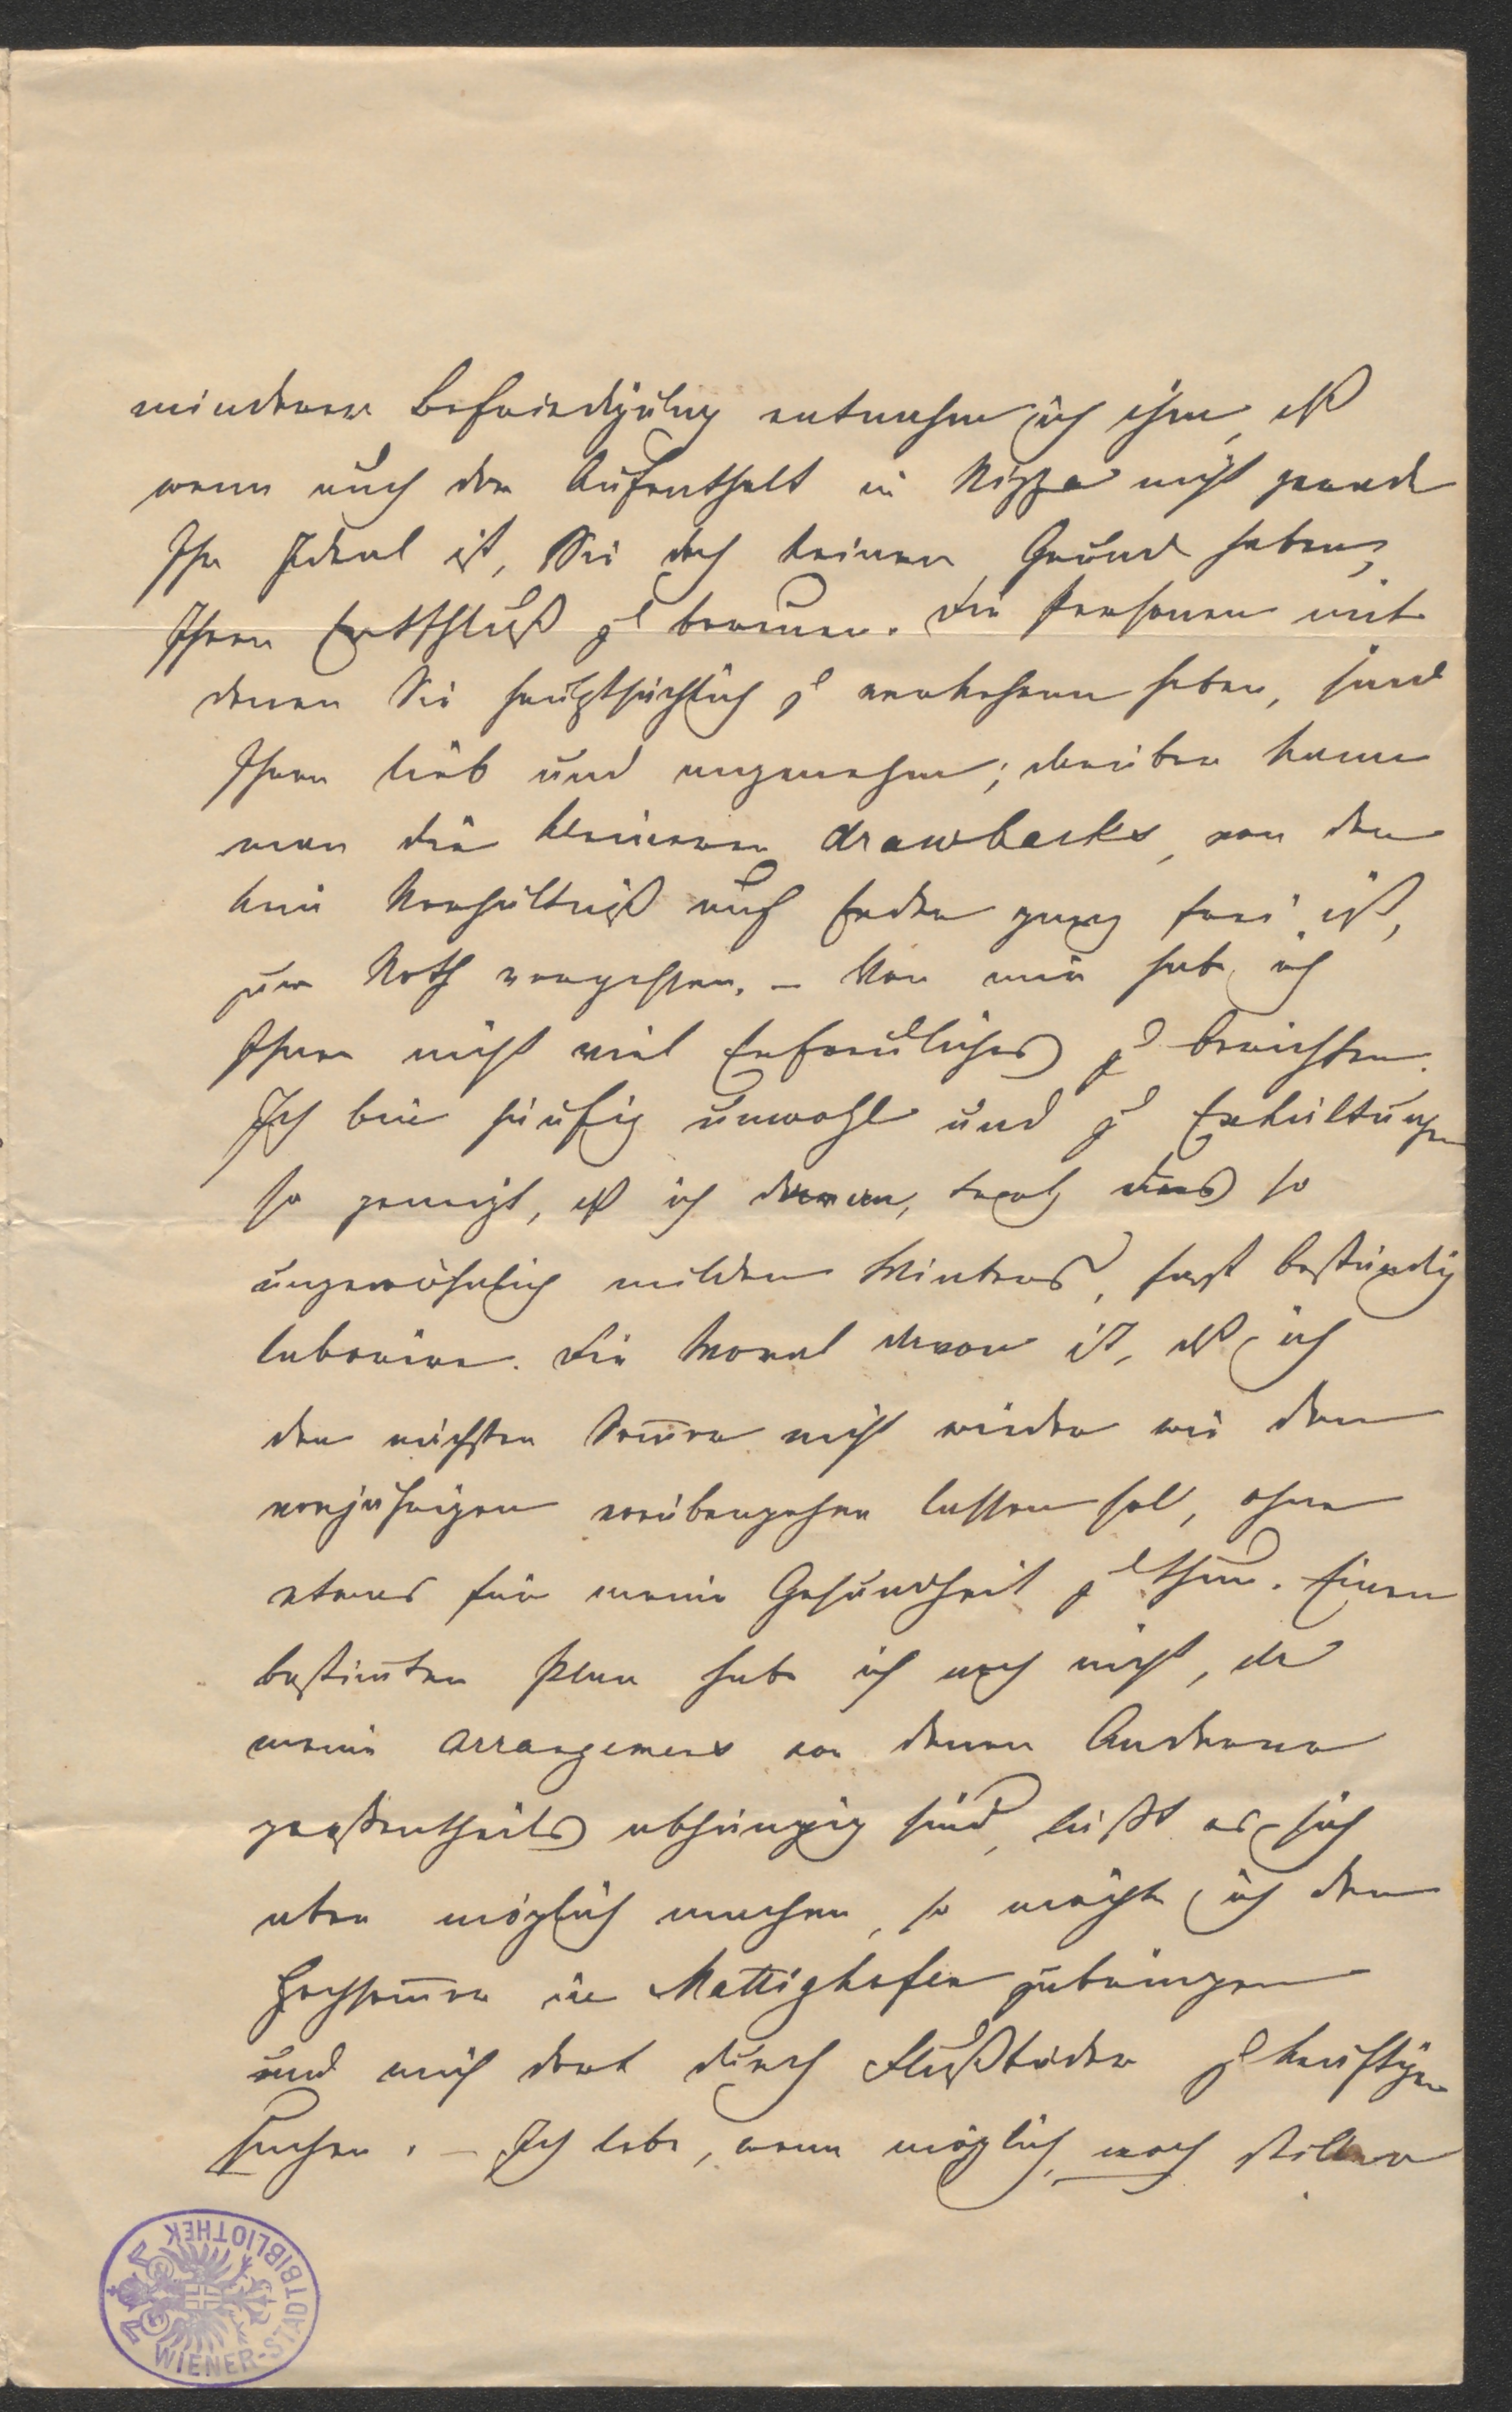 minderer Befriedigung entnehme ich ihm, dß
wenn auch der Aufenthalt in Nizza nicht gerade
Ihr Ideal ist, Sie doch keinen Grund haben,
Ihren Entschluß zu bereuen. Die Personen mit
denen Sie hauptsächlich zu verkehren haben, sind
Ihnen lieb und angenehm; darüber kann
man die kleineren drawbacks, von denen
kein Verhältniß auf Erden ganz frei ist,
zur Noth vergessen. – Von mir habe ich
Ihnen nicht viel Erfreuliches zu berichten.
Ich bin häufig unwohl und zu Erkältungen
so geneigt, dß ich daran, trotz des so
ungewöhnlich milden Winters, fast beständig
laborire. Die Moral davon ist, dß ich
den nächsten Som̄er nicht wieder wie den
vorjährigen vorübergehen lassen soll, ohne
etwas für meine Gesundheit zu thun. Einen
bestim̄ten Plan habe ich noch nicht, da
meine arrangemens von denen Anderer
großentheils abhängig sind, läßt es sich
aber möglich machen, so möchte ich den
Hochsom̄er in Mattighofen zubringen
und mich dort durch Flußbäder zu kräftigen
suchen. – Ich lebe, wenn möglich, noch stiller
WIENER-STADTBIBLIOTHEK